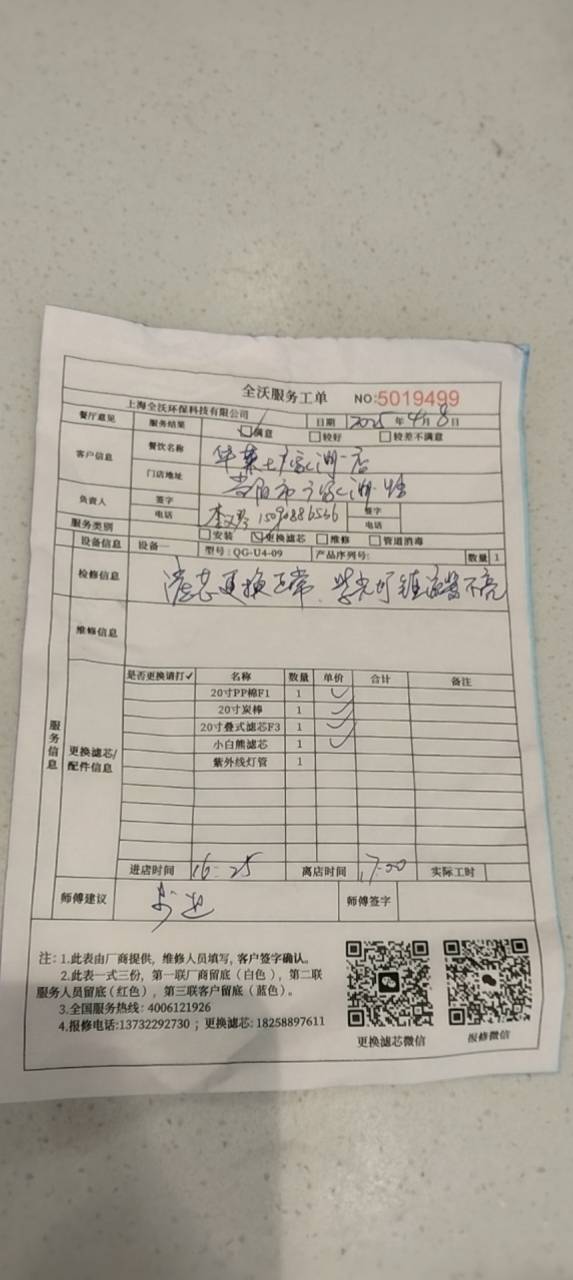 全沃服务工单 NO:5019499
上海全沃环保科技有限公司 日期 2025 年 4 月 8 日
餐厅意见 服务结果 满意 较好 较差不满意
客户信息 餐饮名称 华莱士 店
门店地址
负责人 签字 签字
电话 电话
服务类别 安装 更换滤芯 维修 管道消毒
设备信息 设备一 型号:QG-U4-09 产品序列号: 数量 1
检修信息 滤芯更换正常. 紫光灯镇流器不亮
维修信息
服务信息
更换滤芯/配件信息
是否更换请打✓ 名称 数量 单价 合计 备注
20寸PP棉F1 1 ✓
20寸炭棒 1 ✓
20寸叠式滤芯F3 1 ✓
小白熊滤芯 1 ✓
紫外线灯管 1
进店时间 16:25 离店时间 17:00 实际工时
师傅建议 师傅签字
注:1.此表由厂商提供,维修人员填写,客户签字确认。
2.此表一式三份,第一联厂商留底(白色),第二联
服务人员留底(红色),第三联客户留底(蓝色)。
3.全国服务热线: 4006121926
4.报修电话:13732292730 ; 更换滤芯: 18258897611
更换滤芯微信 报修微信